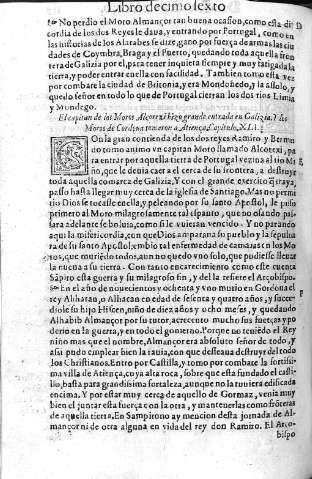 Libro decimosexto
No perdio el Moro Almançor tan buena ocasion, como esta dis
cordia de los dos Reyes le daua, y entrando por Portugal, como en
las historias de los Alarabes se dize, gano por fuerça de armas las ciu
dades de Coymbra, Braga y el Puerto, quedando toda aquella fron
tera de Galizia por el, para tener inquieta siempre y muy fatigada la
tierra, y poder entrar en ella con facilidad. Tambien tomo esta vez
por combate la ciudad de Britonia, y era Mondoñedo, y la assolo, y
quedo señor en todo lo que de Portugal cierran los dos rios Limia
y Mondego.
El capitan de los Moros Alcorexi hizo grande entrada en Galizia. Y los
Moros de Cordoua tomaron a Atiença. Capitulo, XLI.
CON la gran contienda de los dos reyes Ramiro y Bermu
do tomo animo vn capitan Moro llamado Alcorexi, pa
ra entrar por aquella tierra de Portugal vezina al rio Mi
ño, que le deuia caer a el cerca de su frontera, a destruyr
toda aquella comarca de Galizia. Y con el grande exercito q̃ traya,
passo hasta llegar muy cerca de la iglesia de Santiago. Mas no permi
tio Dios se tocasse en ella, y peleando por su santo Apostol, le puso
primero al Moro milagrosamente tal espanto, que no osando pas-
sar adelante se boluia, como si le vuieran vencido. Y no parando
aqui la misericordia, con que Dios ampara su pueblo y la sepultu
ra de su santo Apostol: embio tal enfermedad de camaras en los Mo
ros, que muriẽdo todos, aun no quedo vno solo, que pudiesse lleuar
la nueua a su tierra. Con tanto encarecimiento como este cuenta
Sãpiro esta guerra y su milagroso fin, y del la refiere el Arçobispo.
En el año de nouecientos y ochenta y vno murio en Cordoua el
rey Alihatan, o Alhacan en edad de sesenta y quatro años, y suce-
diole su hijo Hissen, niño de diez años y ocho meses, y quedando
Alhabib Almançor por su tutor, acrecento mucho sus fuerças y po
derio en la guerra, y en todo el gouierno. Porque no teniẽdo el Rey
niño mas que el nombre, Almançor era absoluto señor de todo, y
assi pudo emplear bien la rauia, con que desseaua destruyr del todo
los Christianos. Entro por Castilla, y tomo por combate la fortissi-
ma villa de Atiença, cuya alta roca, sobre que esta fundado el casti-
llo, basta para grandissima fortaleza, aunque no la tuuiera edificada
encima. Y por estar muy cerca de aquello de Gormaz, venia muy
bien el juntar esta fuerça con la otra, y mantenerlas como frõteras
de aquella tierra. En Sampiro no ay mencion desta jornada de Al-
mançor ni de otra alguna en vida del rey don Ramiro. El Arço-
bispo